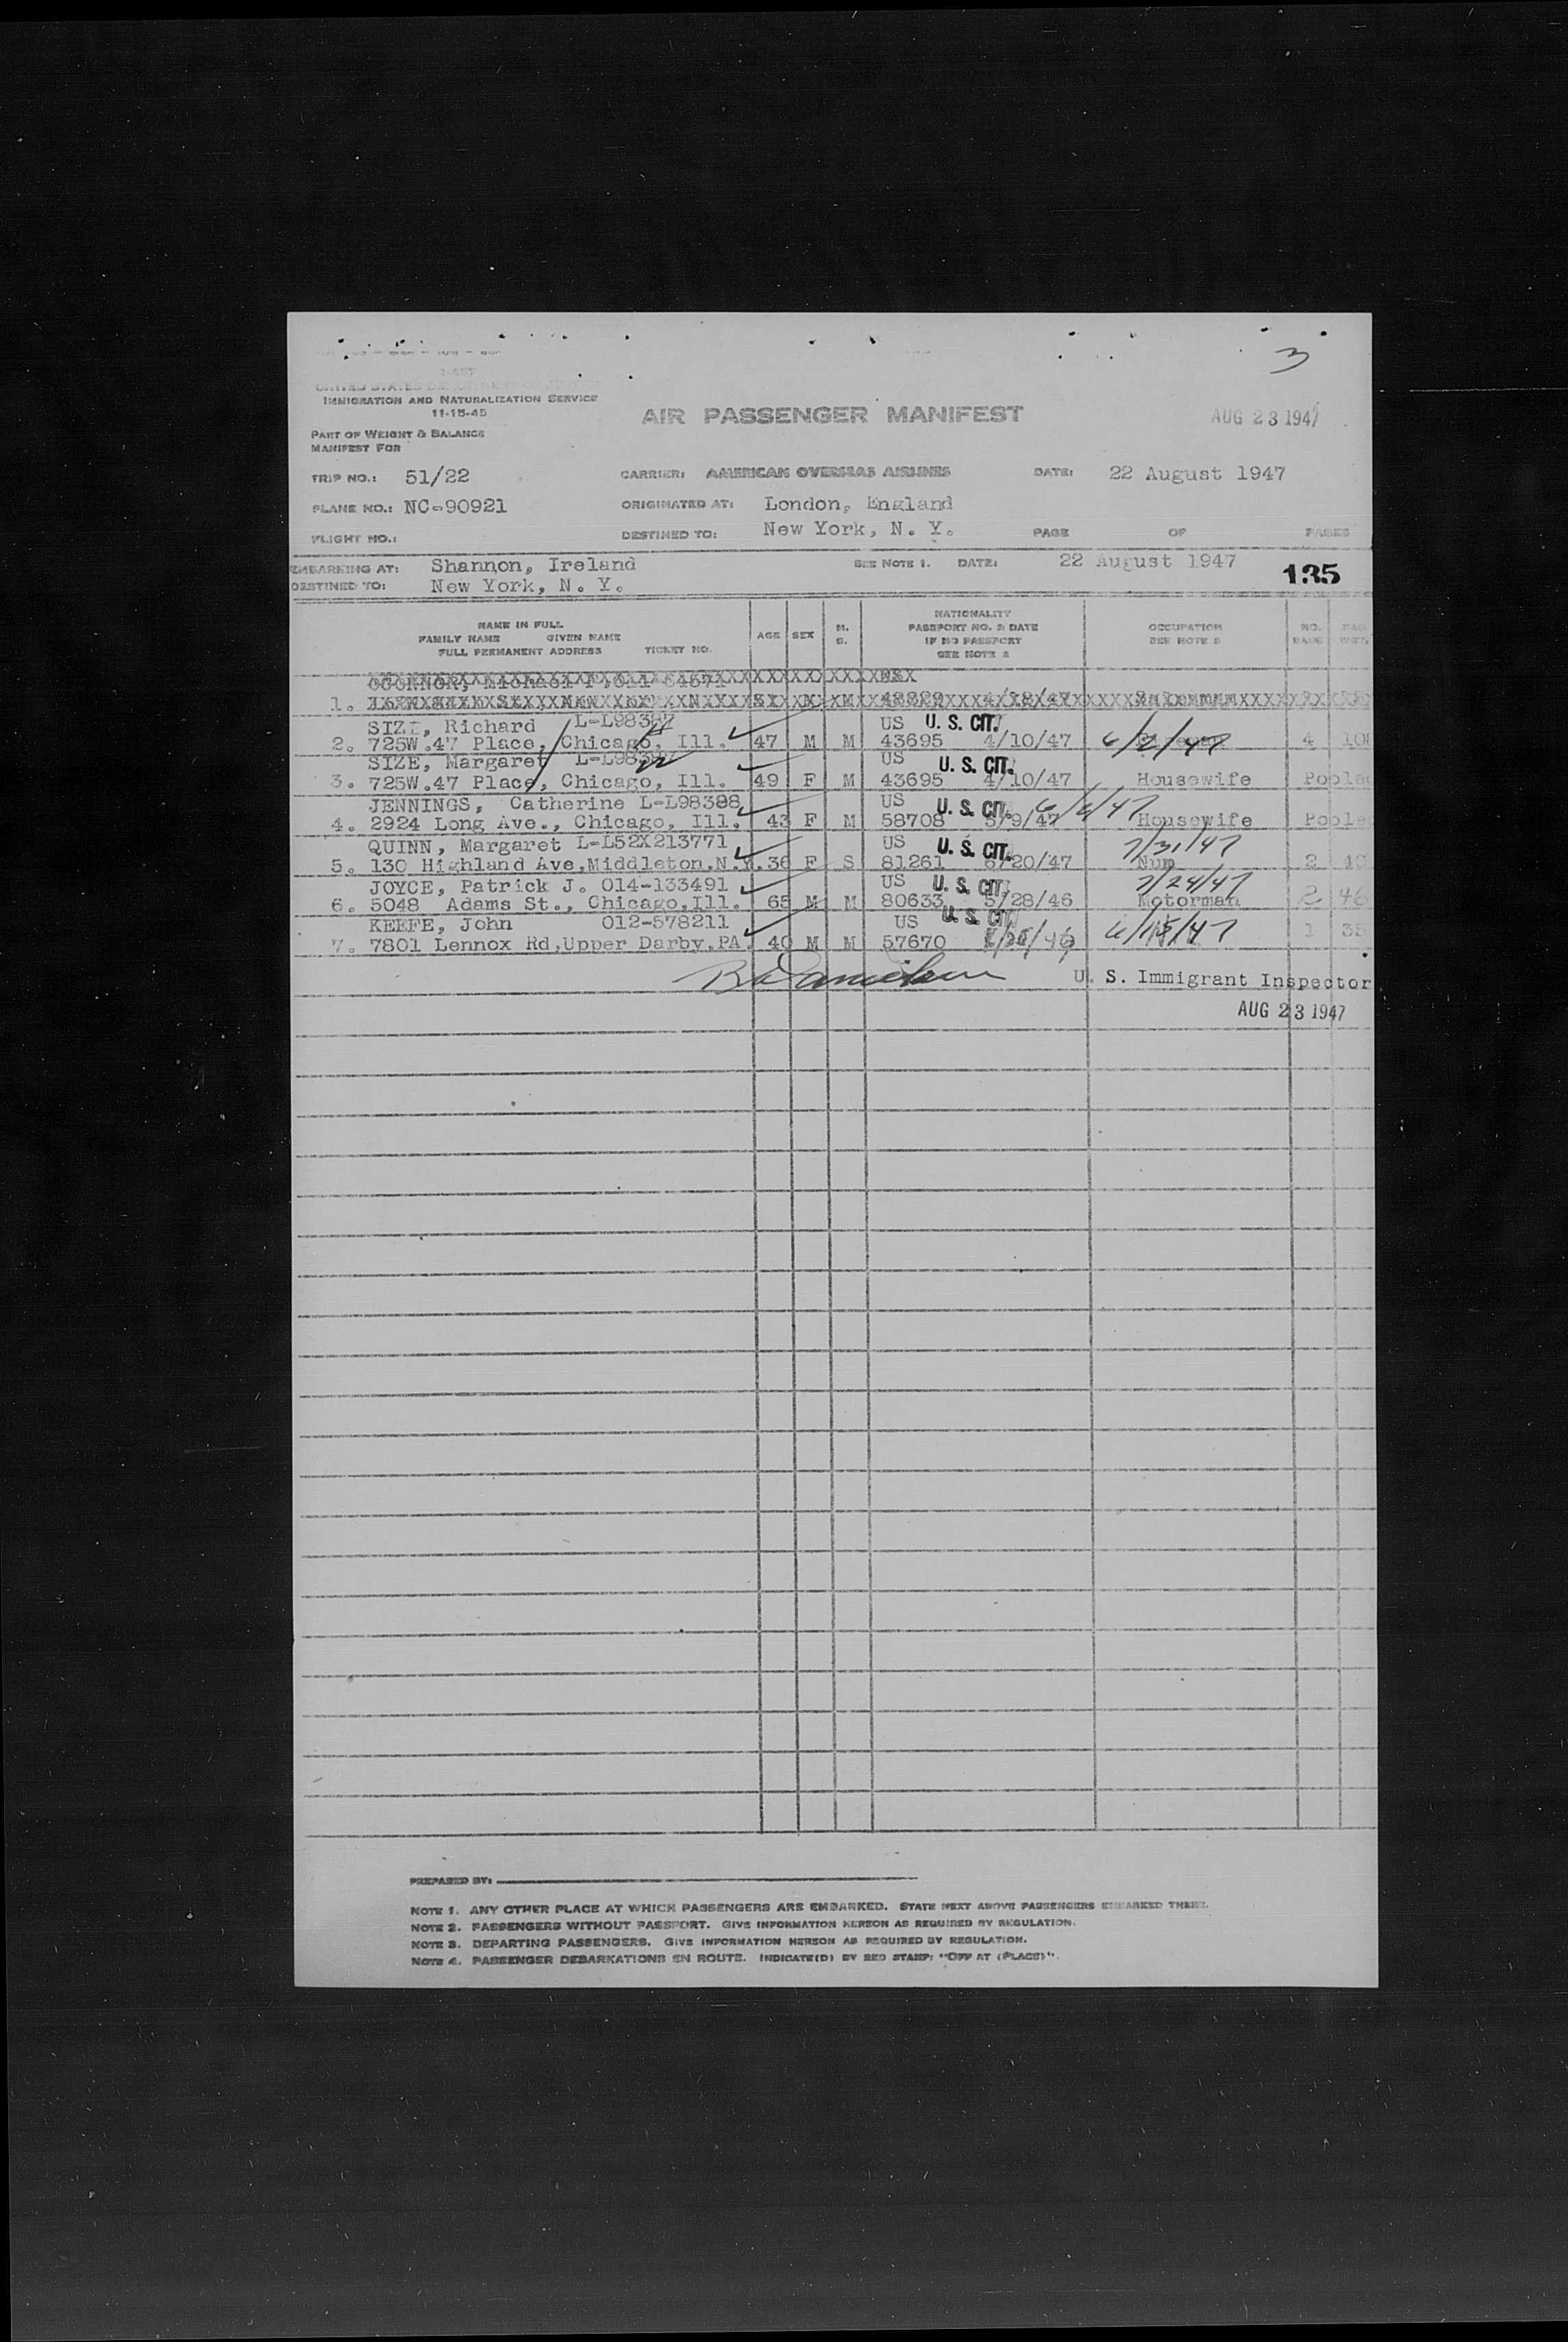 3
UNITED STATES DEPARTMENT OF JUSTICE
IMMIGRATION AND NATURALIZATION SERVICE
11-15-45
AIR PASSENGER MANIFEST
AUG 23 1947
PART OF WEIGHT & BALANCE
MANIFEST FOR
TRIP NO.: 51/22 CARRIER: AMERICAN OVERSEAS AIRLINES DATE: 22 August 1947
PLANE NO.: NC-90921 ORIGINATED AT: London, England
FLIGHT NO.: DESTINED TO: New York, N. Y. PAGE OF PAGES
EMBARKING AT: Shannon, Ireland SEE NOTE 1. DATE: 22 August 1947
DESTINED TO: New York, N. Y. 135
NAME IN FULL
FAMILY NAME GIVEN NAME
FULL PERMANENT ADDRESS TICKET NO.
AGE SEX M. S.
NATIONALITY
PASSPORT NO. & DATE
IF NO PASSPORT
SEE NOTE 2
OCCUPATION
SEE NOTE 3
NO.
OCONNOR, Michael
1.
SIZE, Richard L-L98387 US U. S. CIT.
2. 725W.47 Place, Chicago, Ill. 47 M M 43695 4/10/47 6/2/47 4
SIZE, Margaret US U. S. CIT.
3. 725W.47 Place, Chicago, Ill. 49 F M 43695 4/10/47 Housewife
JENNINGS, Catherine L-L98388 US U. S. CIT. 6/6/47
4. 2924 Long Ave., Chicago, Ill. 43 F M 58708 5/9/47 Housewife
QUINN, Margaret L-L52X213771 US U. S. CIT. 7/31/47
5. 130 Highland Ave,Middleton,N.Y. 36 F S 81261 6/20/47 Num 2 40
JOYCE, Patrick J. 014-133491 US U. S. CIT. 7/24/47
6. 5048 Adams St., Chicago,Ill. 65 M M 80633 5/28/46 Motorman 2 46
KEEFE, John 012-578211 US U. S. CIT.
7. 7801 Lennox Rd,Upper Darby,PA. 40 M M 57670 6/15/47 1 35
U. S. Immigrant Inspector
AUG 23 1947
PREPARED BY:
NOTE 1. ANY OTHER PLACE AT WHICH PASSENGERS ARE EMBARKED. STATE NEXT ABOVE PASSENGERS EMBARKED THERE.
NOTE 2. PASSENGERS WITHOUT PASSPORT. GIVE INFORMATION HEREON AS REQUIRED BY REGULATION.
NOTE 3. DEPARTING PASSENGERS. GIVE INFORMATION HEREON AS REQUIRED BY REGULATION.
NOTE 4. PASSENGER DEBARKATIONS EN ROUTE. INDICATE(D) BY RED STAMP: "OFF AT (PLACE)".